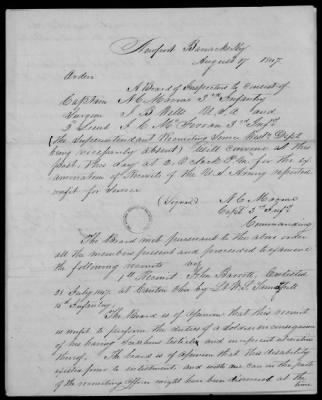 Newport Barracks Ky
August 17 1847
Orders
A Board of Inspectors to consist of
Captain N C Macrae 3rd Infantry
Surgeon J B Wells U.S.A and
2d Lieut J. C. 3rd Infy
(The Superintendent Recruiting Service Westn Dept
being necessarily absent) Will convene at this
post this day at O Clock P.M. for the ex
amination of Recruits of the U.S. Army reported
unfit for Service
(Signed) N C Macrae
Capt 3d Infy
Commanding
The Board met pursuant to the above order
all the members present and proceeded to examine
the following recruits viz
1st Recruit John Enlisted
21 July 1847 at Canton Ohio by Lt
15th Infantry
The Board is of opinion that this recruit
is unfit to perform the duties of a Soldier in consequence
of his having
thereof. The board is of opinion that this disability
existed prior to enlistment and with due care on the part
of the recruiting Officer might have been discovered at the
time